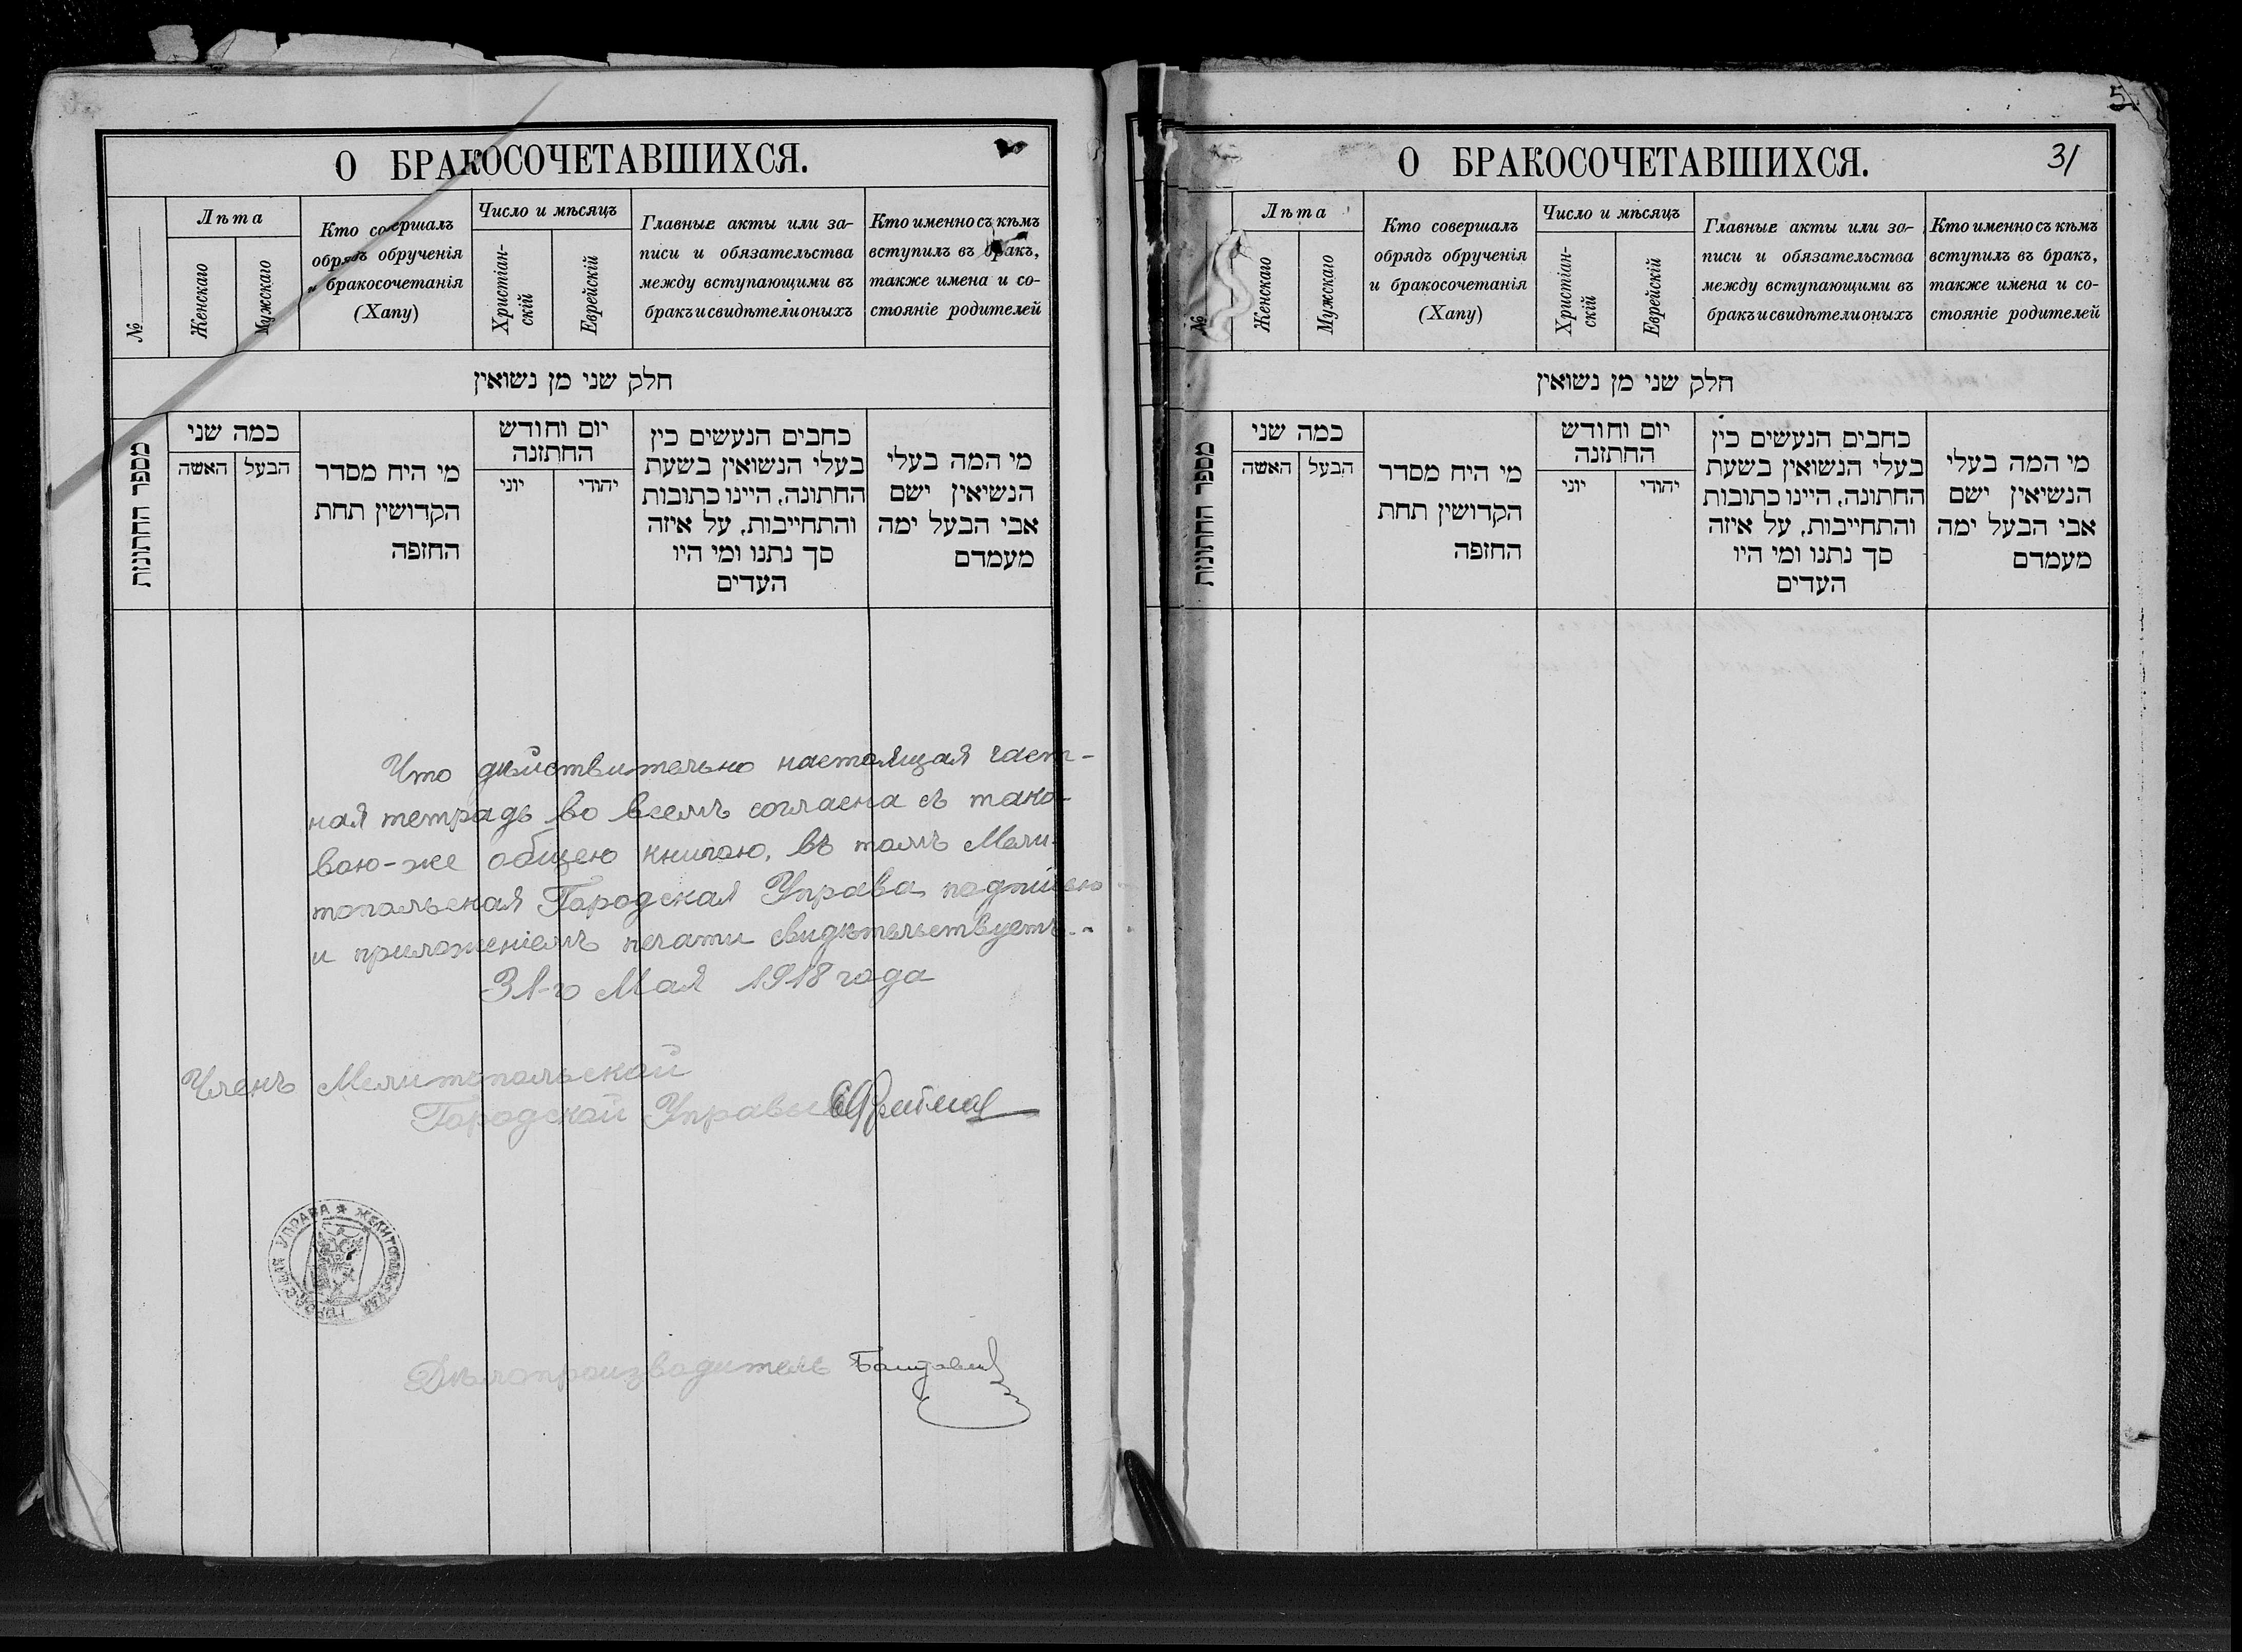 О БРАКОСОЧЕТАВШИХСЯ.
№
Лѣта
Женскаго
Мужскаго
Кто совершалъ
обрядъ обрученія
и бракосочетанія
(Хапу)
Число и мѣсяцъ
Христіан-
скій
Еврейскій
Главные акты или за-
писи и обязательства
между вступающими въ
бракъ и свидѣтели оныхъ
Кто именно съ кѣмъ
вступилъ въ бракъ,
также имена и со-
стояніе родителей
חלק שני מן נשואין
מספר החתונות
כמה שני
האשה
הבעל
מי היח מסדר
הקדושין תחת
החופה
יום וחודש
החתונה
יוני
יהודי
כחבים הנעשים כין
בעלי הנשואין בשעת
החתונה, היינו כתובות
והתחייבות, על איזה
סך נתנו ומי היו
העדים
מי המה בעלי
הנשיאין ישם
אבי הבעל ימה
מעמדם
Что дѣйствительно настоящая част-
ная тетрадь во всемъ согласна съ тако-
вою-же общею книгою, въ томъ Мели-
топольская Городская Управа подписью
и приложеніемъ печати свидѣтельствуетъ.
31-го Мая 1918 года
Членъ Мелитопольской
Городской Управы
МЕЛИТОПОЛЬСКАЯ ГОРОДСКАЯ УПРАВА
Дѣлопроизводитель
5
О БРАКОСОЧЕТАВШИХСЯ.
31
№
Лѣта
Женскаго
Мужскаго
Кто совершалъ
обрядъ обрученія
и бракосочетанія
(Хапу)
Число и мѣсяцъ
Христіан-
скій
Еврейскій
Главные акты или за-
писи и обязательства
между вступающими въ
бракъ и свидѣтели оныхъ
Кто именно съ кѣмъ
вступилъ въ бракъ,
также имена и со-
стояніе родителей
חלק שני מן נשואין
מספר החתונות
כמה שני
האשה
הבעל
מי היח מסדר
הקדושין תחת
החופה
יום וחודש
החתונה
יוני
יהודי
כחבים הנעשים כין
בעלי הנשואין בשעת
החתונה, היינו כתובות
והתחייבות, על איזה
סך נתנו ומי היו
העדים
מי המה בעלי
הנשיאין ישם
אבי הבעל ימה
מעמדם